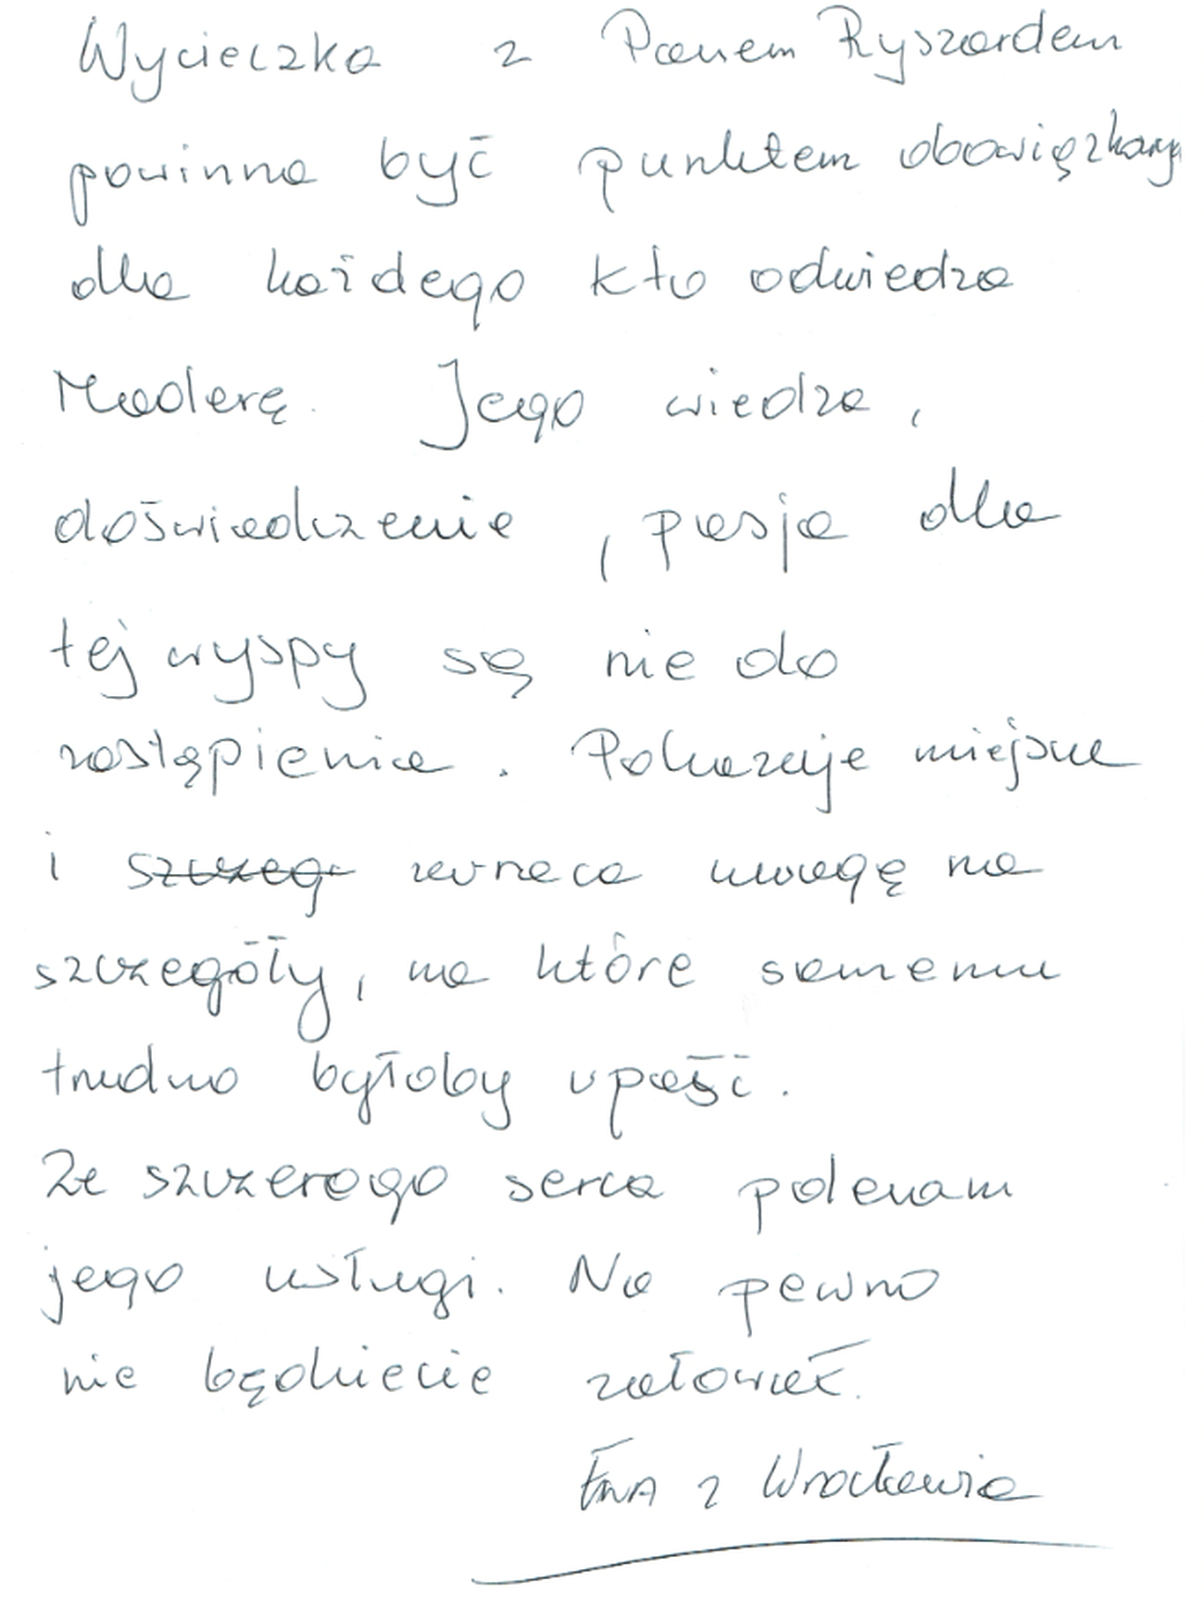 Wycieczka z Panem Ryszardem
powinna być punktem obowiązkowym
dla każdego kto odwiedza
Maderę. Jego wiedza,
doświadczenie, pasja dla
tej wyspy są nie do
zastąpienia. Pokazuje miejsca
i szczeg zwraca uwagę na
szczegóły, na które samemu
trudno byłoby wpaść.
Ze szczerego serca polecam
jego usługi. Na pewno
nie będziecie żałować.
Ewa z Wrocławia